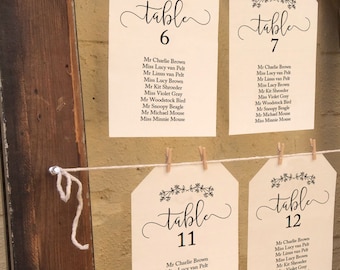 table
6
Mr Charlie Brown
Miss Lucy van Pelt
Mr Linus van Pelt
Miss Lucy Brown
Mr Kit Shroeder
Miss Violet Gray
Mr Woodstock Bird
Mr Snoopy Beagle
Mr Michael Mouse
Miss Minnie Mouse
table
7
Mr Charlie Brown
Miss Lucy van Pelt
Mr Linus van Pelt
Miss Lucy Brown
Mr Kit Shroeder
Miss Violet Gray
Mr Woodstock Bird
Mr Snoopy Beagle
Mr Michael Mouse
Miss Minnie Mouse
table
11
Mr Charlie Brown
Miss Lucy van Pelt
table
12
Mr Charlie Brown
Miss Lucy van Pelt
Mr Linus van Pelt
Miss Lucy Brown